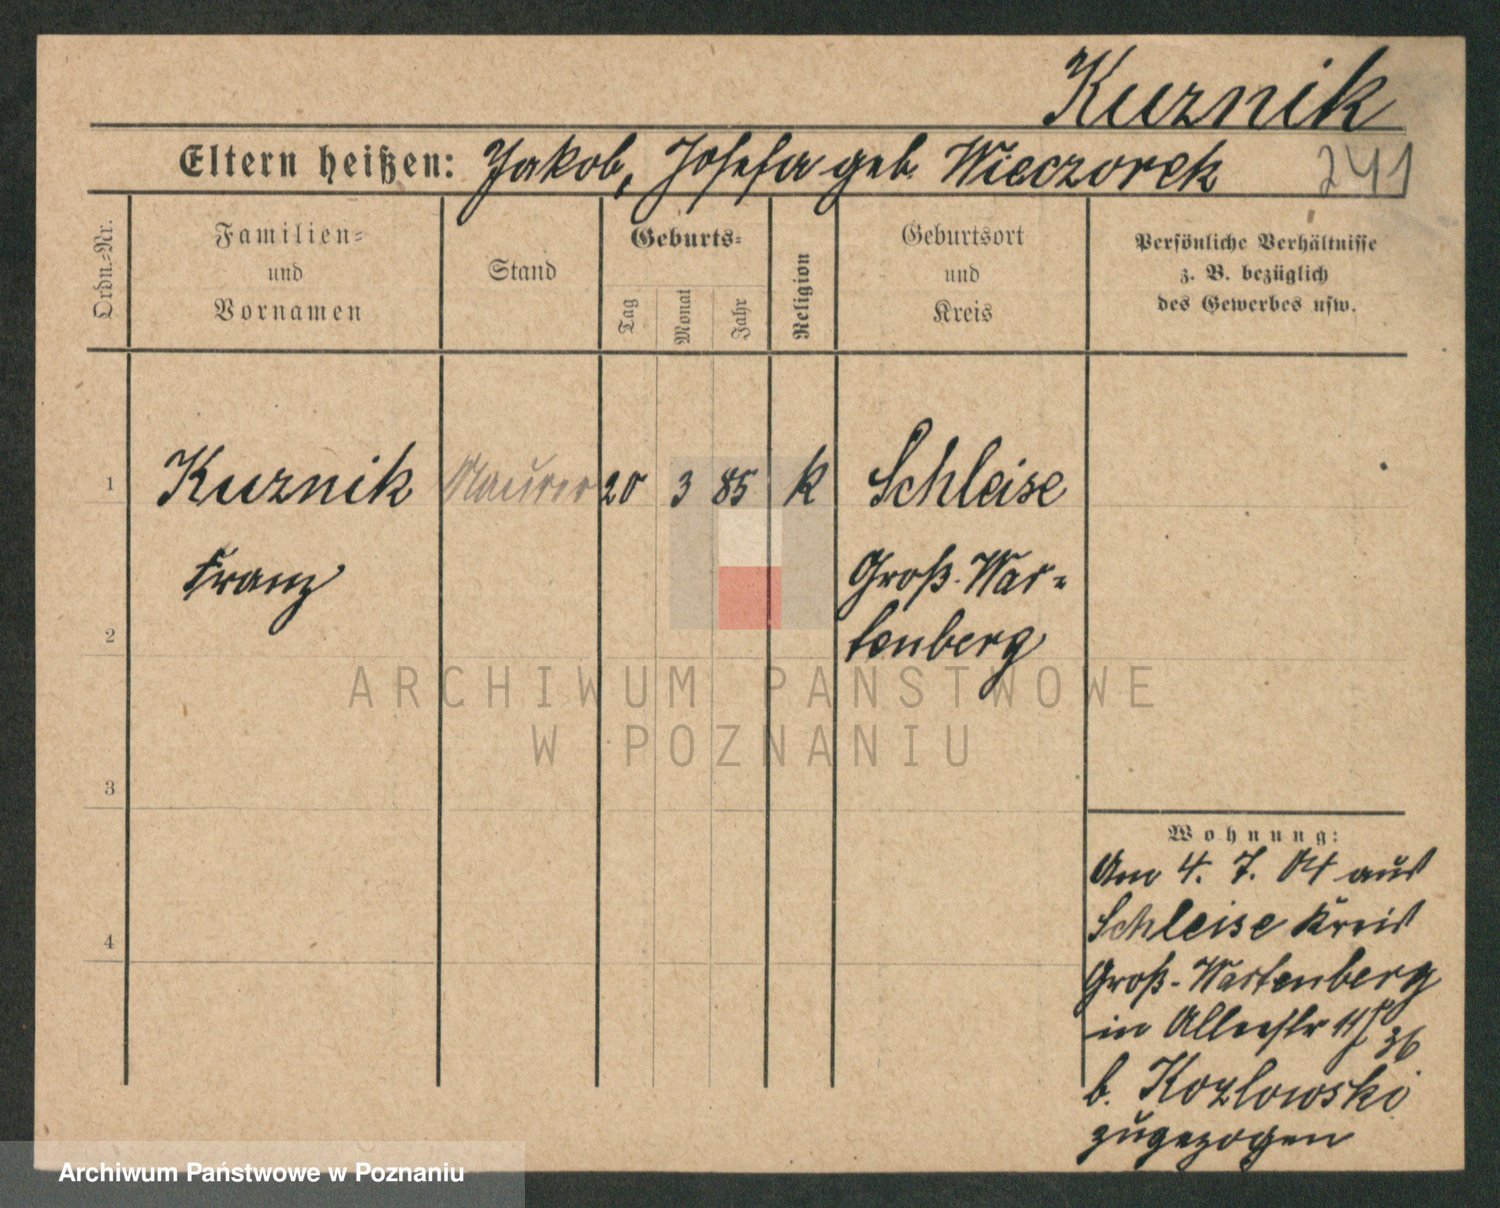 Kuznik
Eltern heißen: Jakob, Josefa geb. Wieczorek
241
Ordn.-Nr.
Familien-
und
Vornamen
Stand
Geburts-
Tag
Monat
Jahr
Religion
Geburtsort
und
Kreis
Persönliche Verhältnisse
z. B. bezüglich
des Gewerbes usw.
1
Kuznik
Maurer
20
3
85
K
Schleise
Franz
Groß-War-
2
tenberg
ARCHIWUM PAŃSTWOWE
W POZNANIU
3
Wohnung:
Am 4. 7. 04 aus
4
Schleise Kreis
Groß-Wartenberg
in Alleestr
36
b. Kozlowski
zugezogen
Archiwum Państwowe w Poznaniu